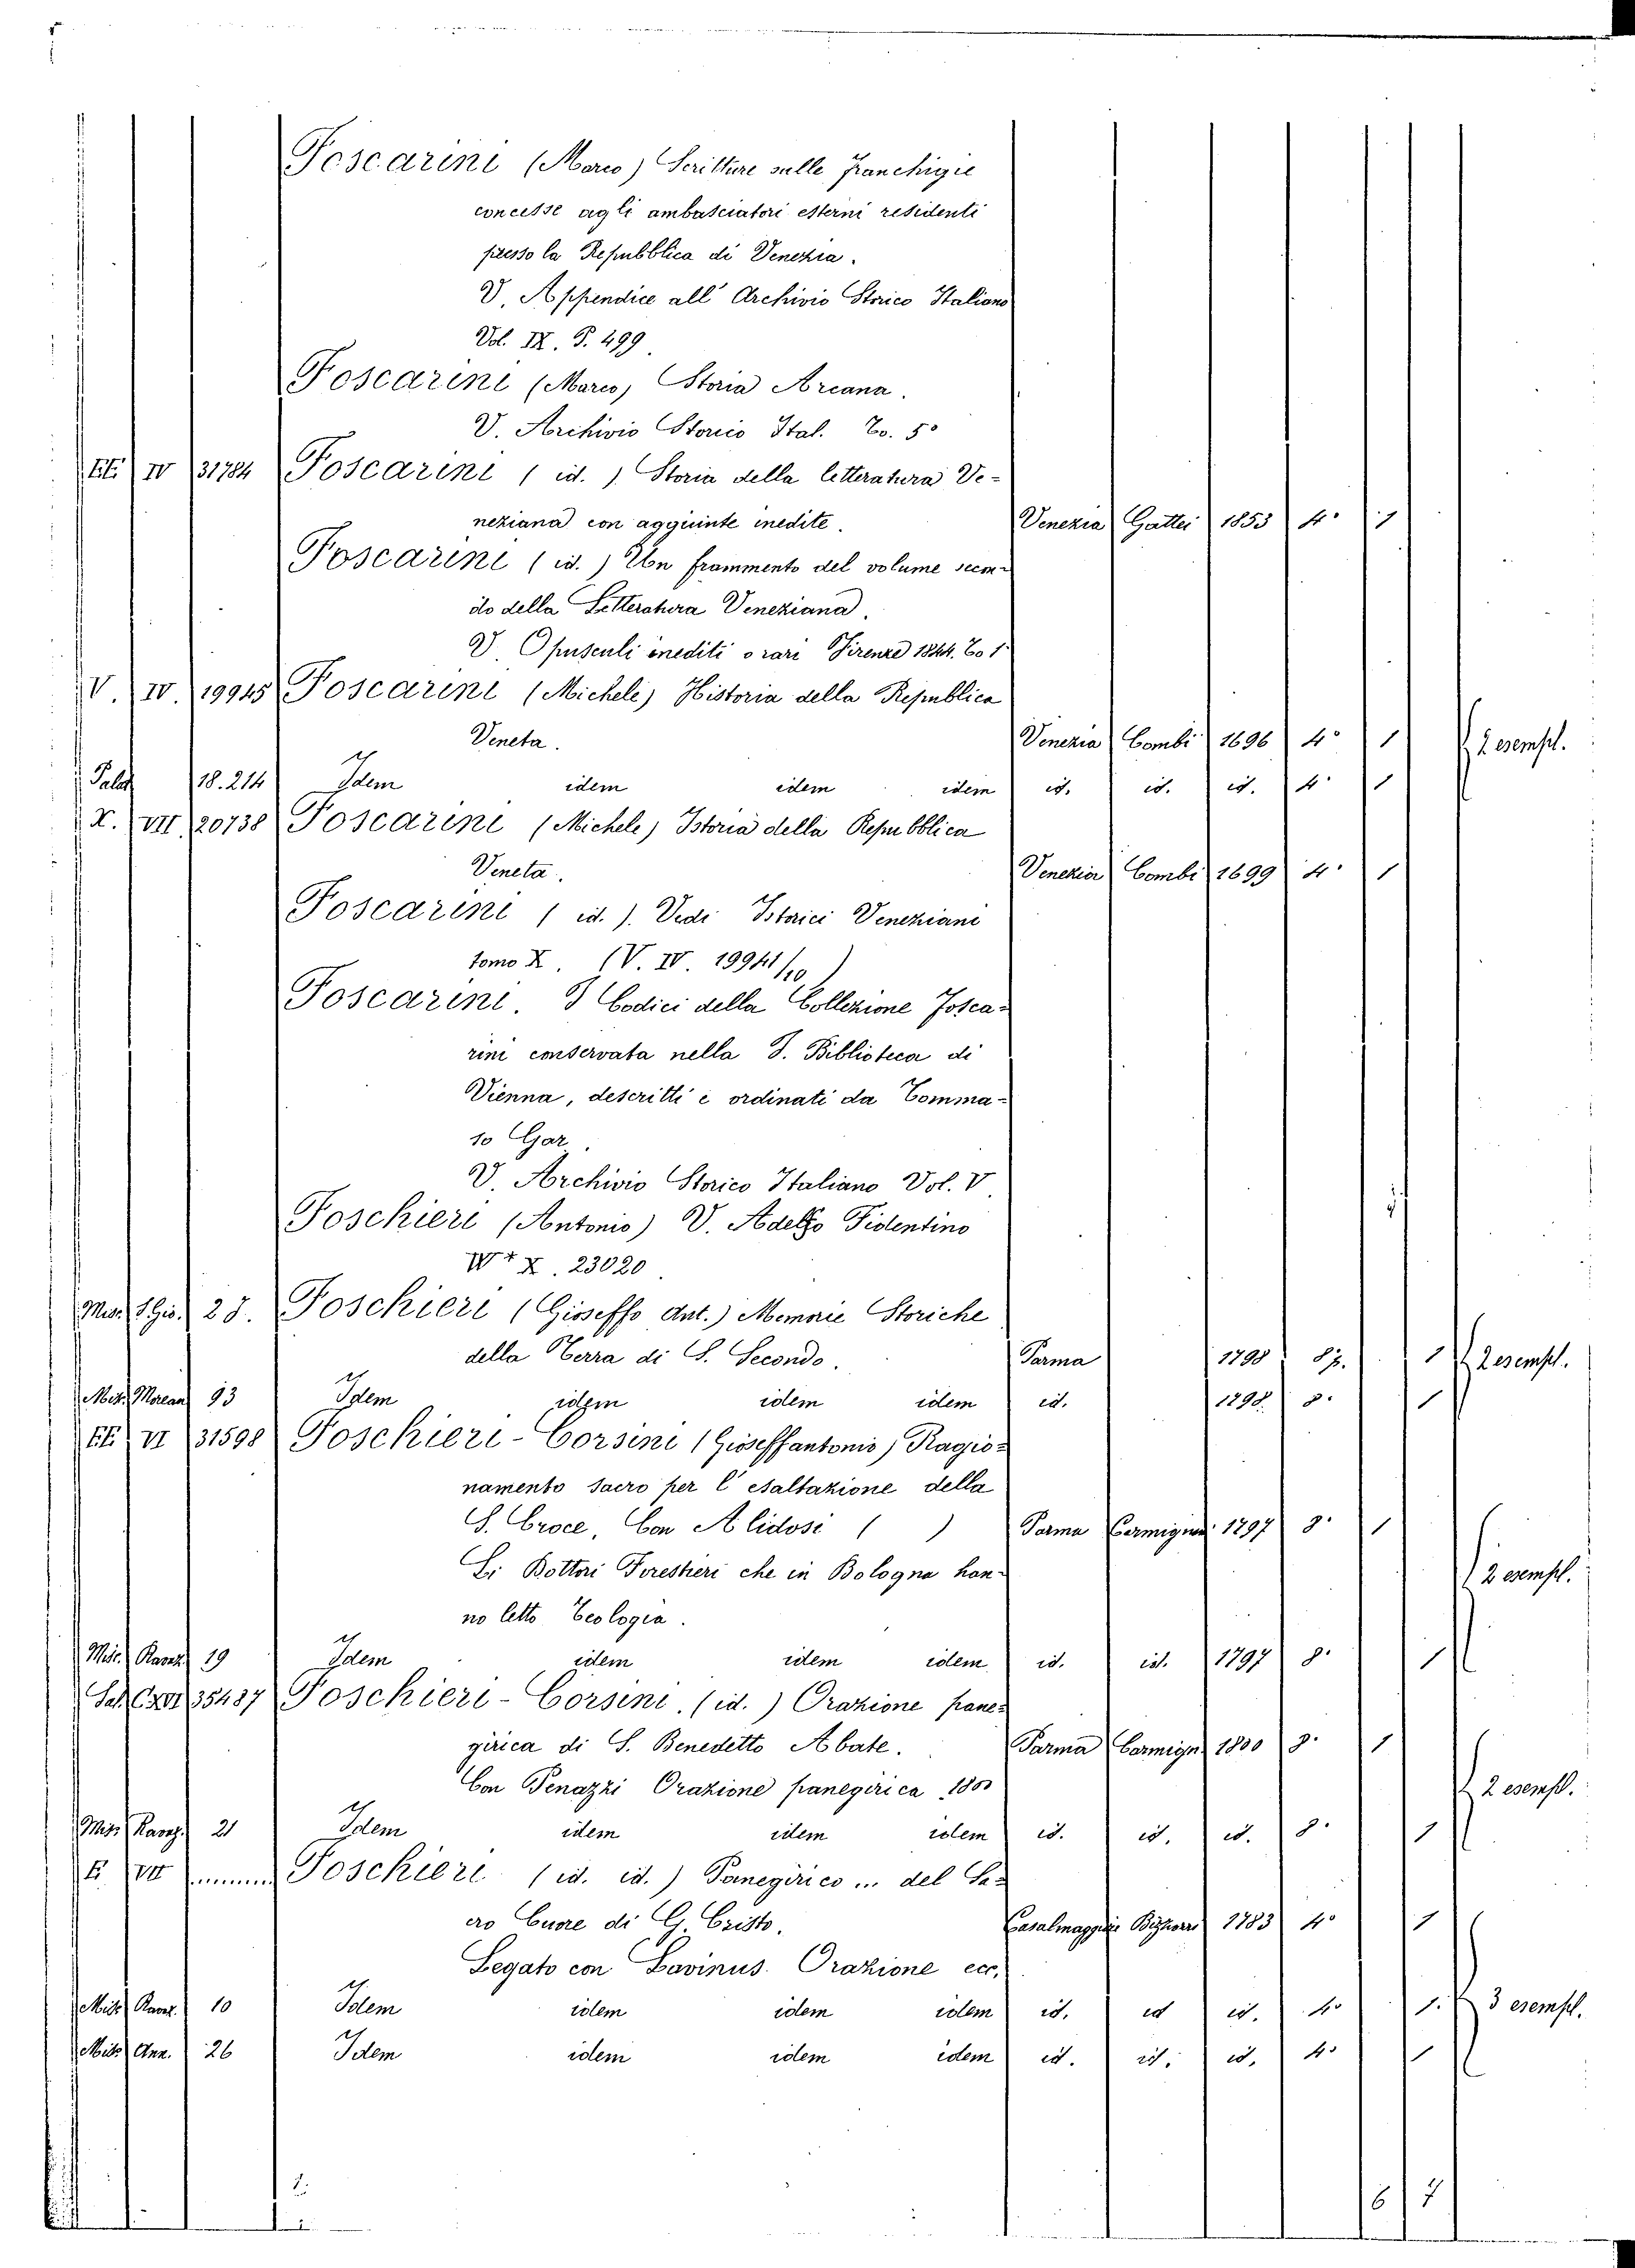 Foscarini (Marco) Scritture sulle franchigie
concesse agli ambasciatori esterni residenti
presso la Repubblica di Venezia.
V. Appendice all' Archivio Storico Italiano
Vol. IX. P. 499
Foscarini (Marco) Storia Arcana.
V. Archivio Storico Ital. To. 5º
IV 31784 Foscarini (id.) Storia della letteratura Ve-
neziana con aggiunte inedite. Venezia Gattei 1853 4º 1
Foscarini (id.) Un frammento del volume secon-
do della Letteratura Veneziana.
V. Opusculi inediti o rari Firenze 1844. To 1
V. IV. 19945 Foscarini (Michele) Historia della Republica
Veneta. Venezia Combi 1696 4º 1 2 esempl.
Palat 18.214 Idem idem idem idem id. id. id. 4º 1
X. VII 20738 Foscarini (Michele) Istoria della Repubblica
Veneta. Venezia Combi 1699 4º 1
Foscarini (id.). Vedi Istorici Veneziani
tomo X. (V. IV. 19941/10)
Foscarini. I Codici della Collezione Fosca-
rini conservata nella I. Biblioteca di
Vienna, descritti e ordinati da Tomma-
so Gar.
V. Archivio Storico Italiano Vol. V
Foschieri (Antonio) V. Adelfo Fidentino
W+ X. 23020
Misc. S. Gio. 28. Foschieri (Gioseffo Ant.) Memorie Storiche
della Terra di S. Secondo. Parma 1798 8º. 1 2 esempl.
Misc. Morean 93 Idem idem idem idem id. 1798. 8º 1
VI 31598 Foschieri-Corsini (Gioseffantonio) Ragio-
namento sacro per l'esaltazione della
S. Croce, Con Alidosi ( ) Parma Carmignani 1797 8º 1
Li Dottori Forestieri che in Bologna han- 2 esempl.
no letto Teologia.
Misc. Ravaz. 19 Idem idem idem idem id. id. 1797 8º 1
XVI 35437 Foschieri-Corsini. (id.) Orazione pane-
girica di S. Benedetto Abate. Parma Carmign. 1800 8º 1
Con Penazzi Orazione panegirica 1800 2 esempl.
Misc. Ravaz. 21 Idem idem idem idem id. id. id. 8º 1
VII Foschieri (id. id.) Panegirico ... del Sa-
cro Cuore di G. Cristo. Casalmaggiore Bizzorri 1783 4º 1
Legato con Lavinus. Orazione ecc.
Misc. Ravaz. 10 Idem idem idem idem id. id id. 4º 1. 3 esempl.
Misc. Ann. 26 Idem idem idem idem id. id. id. 4º 1
6 7